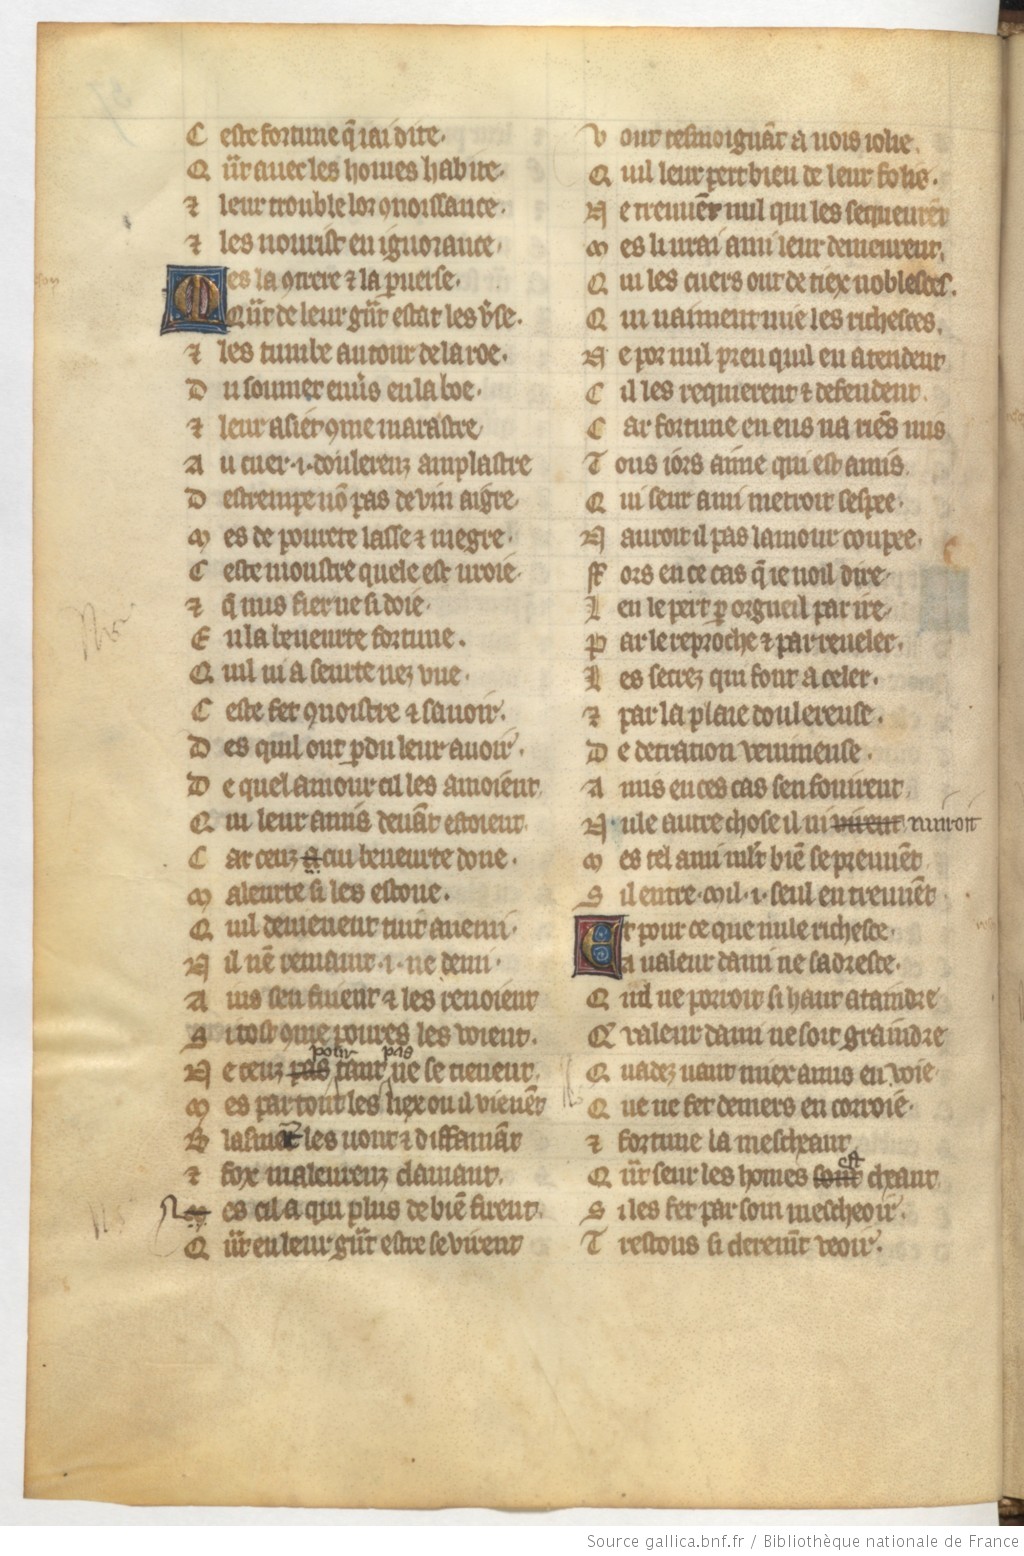 C este fortune q̃ iai dite.
Q ũt auec les homes habite.
⁊ leur trouble lor ꝯnoissance.
⁊ les nourist en ignorance.
M es la ꝯtrere ⁊ la puerse.
Qũt de leur gũt estat les v̾se.
⁊ les tumbe au tour de la roe.
D u sommet enuis en la boe.
⁊ leur asiet ꝯme marastre
A u cuer .i. doulereuz amplastre
D estrempe nõ pas de vin aigre.
m es de pourete lasse ⁊ megre.
C este moustre quele est uroie.
⁊ q̃ nus fier ne si doie.
E n la beneurte fortune.
Q uil ni a seurte nez vne.
C este fet ꝯnoistre ⁊ sauoir.
D es quil ont ꝑdu leur auoir.
D e quel amour cil les amoiẽt
Q ui leur amis deuãt estoient.
C ar ceuz a cui beneurte done.
m aleurte si les estone.
Q uil deuienent tuit anemi.
N il nẽ remaint .i. ne demi.
A ins sen fuient ⁊ les renoient
S i tost ꝯme poures les voient.
pour pas
N e ceuz pas tant ne se tienent.
m es par touz les liex ou il vienẽt
B lasmãt les uont ⁊ diffamãt
⁊ fox maleureuz clamant.
N es cil a qui plus de biẽ firent.
Q ũt en leur gũt estre se virent
V ont tesmoignãt a uois iolie.
Q uil leur pert bien de leur folie.
N e treuuẽt nul qui les sequeurẽt
m es li urai ami leur demeurent.
Q ui les cuers ont de tiex noblesces.
Q ui naiment mie les richesces.
N e por nul preu quil en atendent
C il les requierent ⁊ defendent.
C ar fortune en eus na riẽs mis
T ous iors aime qui est amis.
Q ui seur ami metroit sespee.
N auroit il pas lamour coupee.
ff ors en ce cas q̃ ie uoil dire.
L en le pert ꝑ orgueil par ire.
P ar le reproche ⁊ par reueler.
L es secrez qui font a celer.
⁊ par la plaie doulereuse.
D e detration venimeuse.
A mis en ces cas sen fouiroit.
N ule autre chose il ni nuiroit
m es tel ami mlt̾ biẽ se preuuẽt
S il entre .mil. .i. seul en treuuẽt
E t pour ce que nule richesce.
A ualeur dami ne sadresce.
Q uel ne porroit si haut ataindre
Q̃ valeur dami ne soit graindre
Q uadez uaut miex amis en voie.
Q ue ne fet deniers en corroie.
⁊ fortune la mescheant
est
Q ũt seur les homes sont cheant
S i les fet par som mescheoir.
T restous si cleremẽt veoir.
Source gallica.bnf.fr / Bibliothèque nationale de France